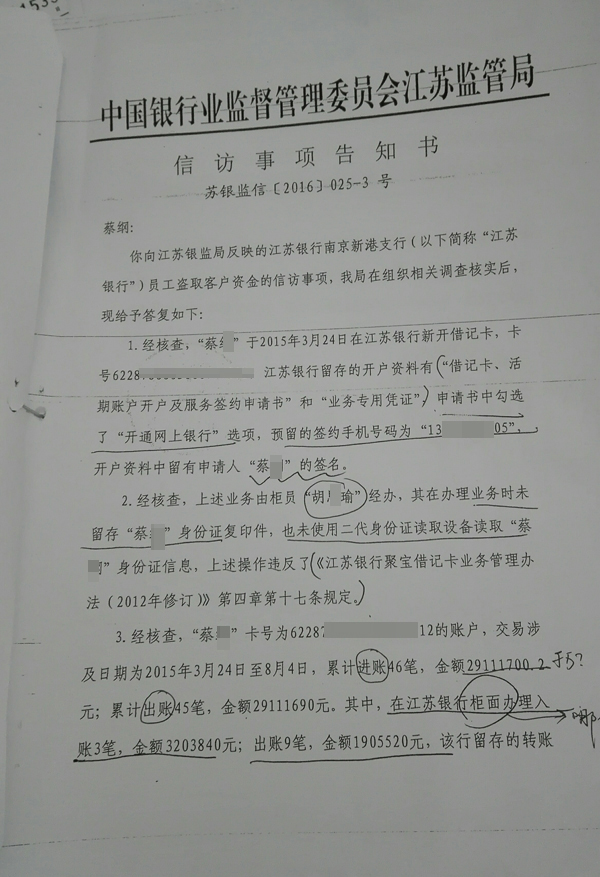 中国银行业监督管理委员会江苏监管局
信访事项告知书
苏银监信〔2016〕025-3 号
蔡纲:
你向江苏银监局反映的江苏银行南京新港支行(以下简称“江苏
银行”)员工盗取客户资金的信访事项,我局在组织相关调查核实后,
现给予答复如下:
1.经核查,“蔡 ”于2015年3月24日在江苏银行新开借记卡,卡
号6228 江苏银行留存的开户资料有“借记卡、活
期账户开户及服务签约申请书”和“业务专用凭证”,申请书中勾选
了“开通网上银行”选项,预留的签约手机号码为“13 05”,
开户资料中留有申请人“蔡 ”的签名。
2.经核查,上述业务由柜员“胡 瑜”经办,其在办理业务时未
留存“蔡 ”身份证复印件,也未使用二代身份证读取设备读取“蔡
”身份证信息,上述操作违反了《江苏银行聚宝借记卡业务管理办
法(2012年修订)》第四章第十七条规定。
3.经核查,“蔡 ”卡号为62287 12的账户,交易涉
及日期为2015年3月24日至8月4日,累计进账46笔,金额29111700.2
元;累计出账45笔,金额29111690元。其中,在江苏银行柜面办理入
账3笔,金额3203840元;出账9笔,金额1905520元,该行留存的转账